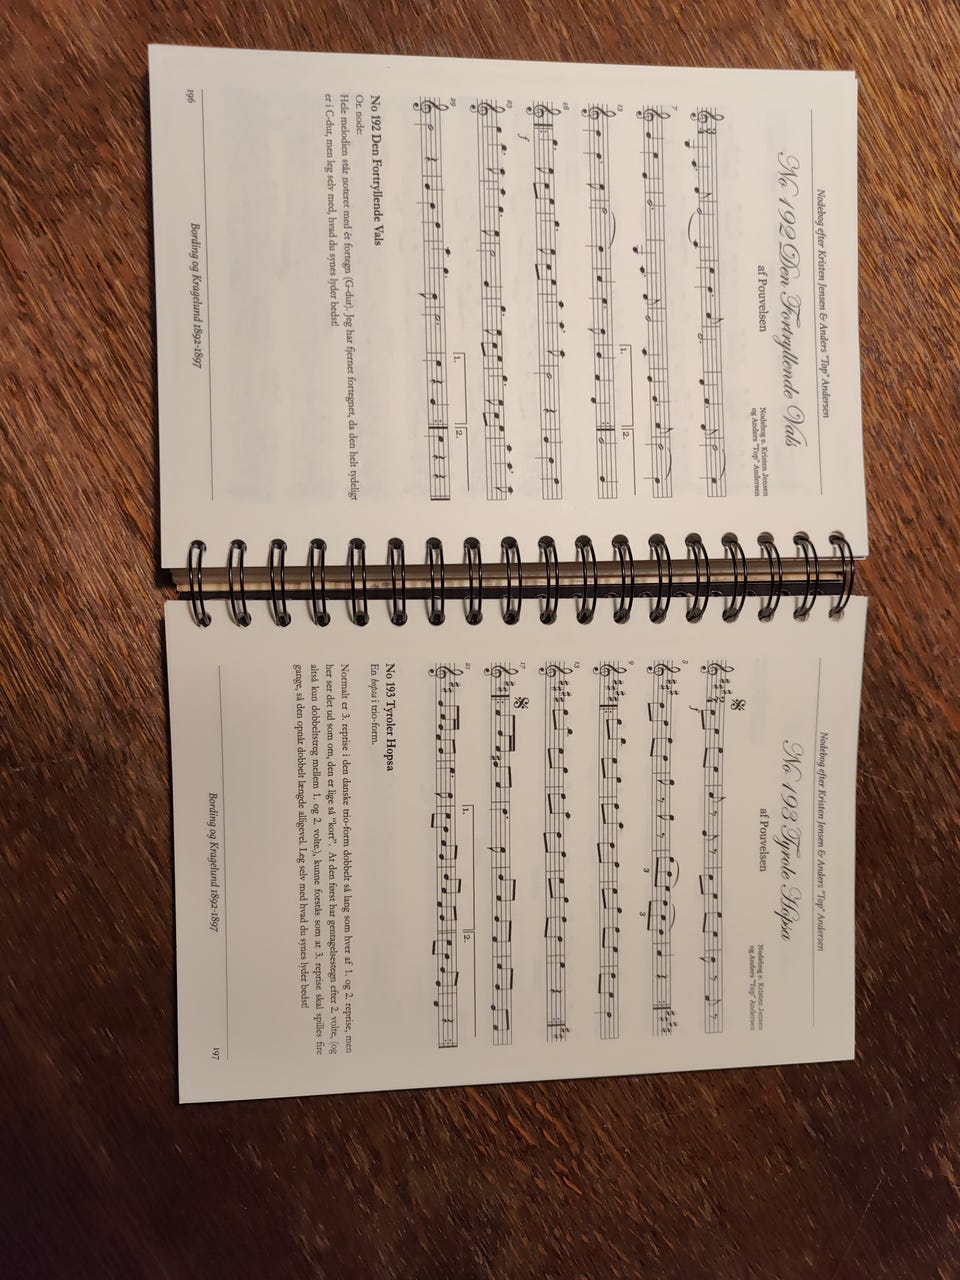 Nodebog efter Kristen Jensen & Anders "Top" Andersen
No 192 Den Fortryllende Vals
af Pouvelsen
Nodebog e. Kristen Jensen
og Anders "Top" Andersen
7
13
1.
2.
18
f
23
29
1.
2.
No 192 Den Fortryllende Vals
Or. node:
Hele melodien står noteret med ét fortegn (G-dur). Jeg har fjernet fortegnet, da den helt tydeligt
er i C-dur, men leg selv med, hvad du synes lyder bedst!
196
Bording og Kragelund 1892-1897
Nodebog efter Kristen Jensen & Anders "Top" Andersen
No 193 Tyrole Hopsa
af Pouvelsen
Nodebog e. Kristen Jensen
og Anders "Top" Andersen
f
5
3
3
9
13
17
21
1.
2.
No 193 Tyroler Hopsa
En hopsa i trio-form.
Normalt er 3. reprise i den danske trio-form dobbelt så lang som hver af 1. og 2. reprise, men
her ser det ud som om, den er lige så "kort". At den først har gentagelsestegn efter 2. volte, (og
altså kun dobbeltstreg mellem 1. og 2. volte.), kunne forstås som at 3. reprise skal spilles fire
gange, så den opnår dobbelt længde alligevel. Leg selv med hvad du synes lyder bedst!
Bording og Kragelund 1892-1897
197